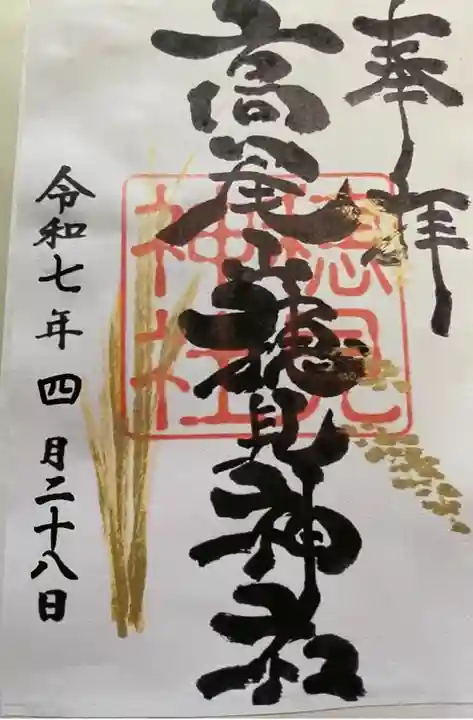 奉拝
高尾山穂見神社
穂見
神社
令和七年四月二十八日